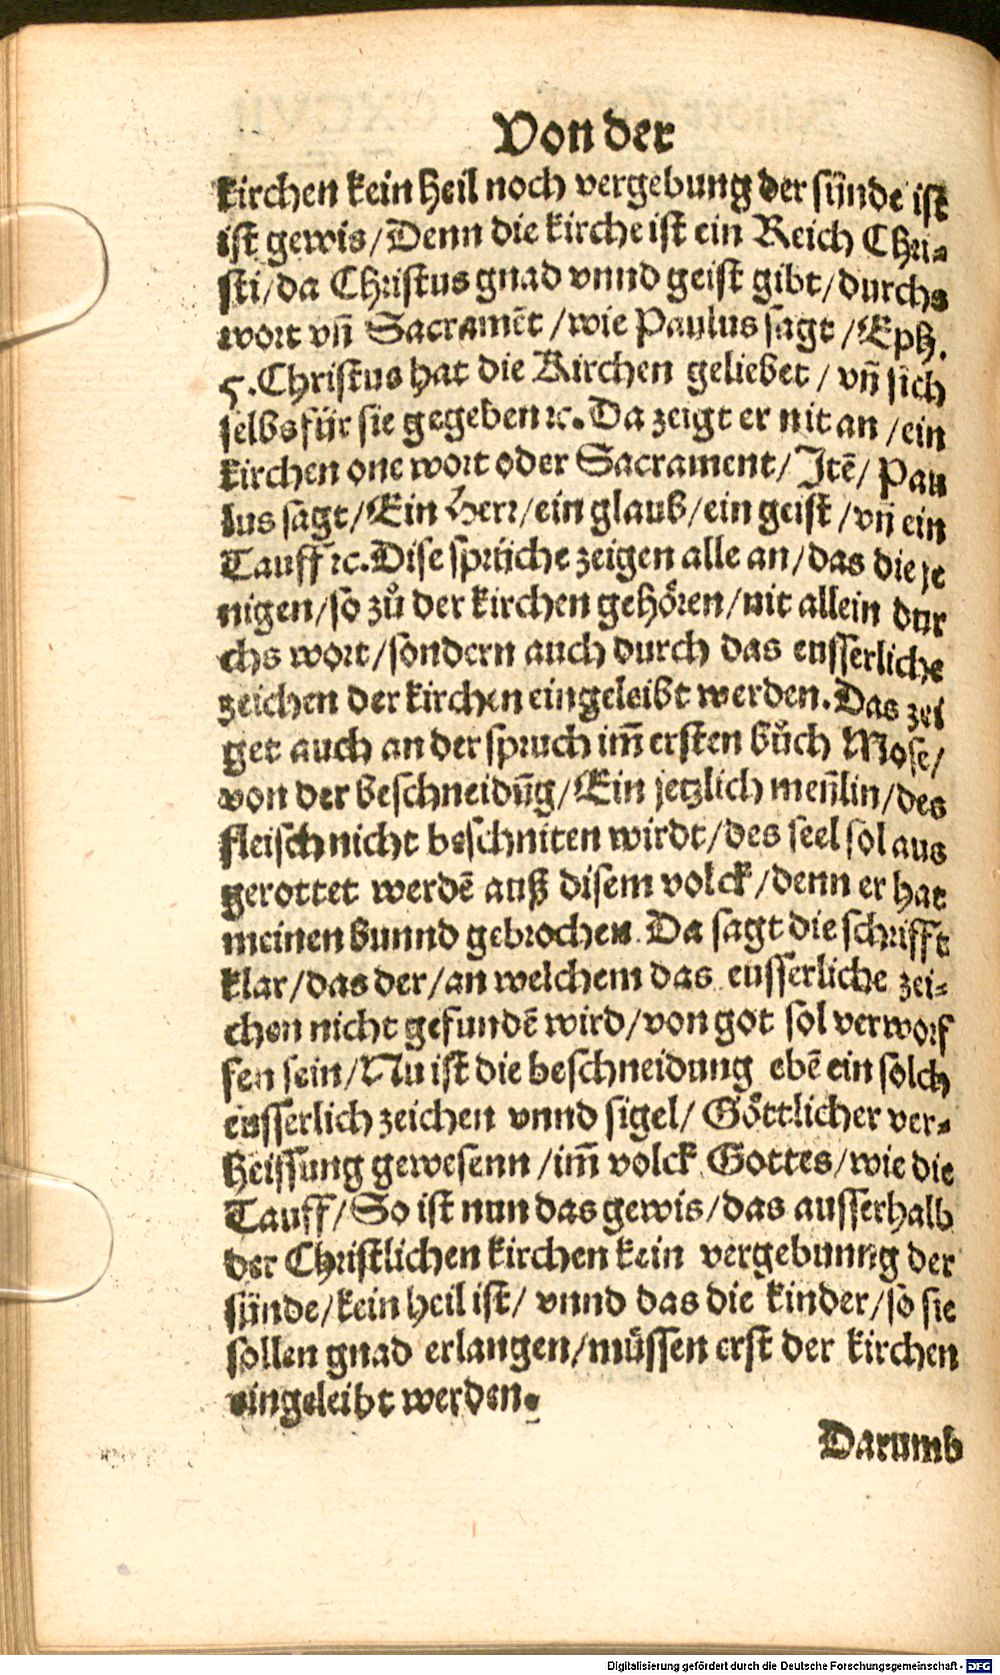 Von der
kirchen kein heil noch vergebung der sünde ist
ist gewis/Denn die kirche ist ein Reich Chri⸗
sti/da Christus gnad vnnd geist gibt/durchs
wort vn̄ Sacramēt/wie Paulus sagt/Eph.
5. Christus hat die Kirchen geliebet/vn̄ sich
selbs für sie gegeben ꝛc. Da zeigt er nit an/ein
kirchen one wort oder Sacrament/Itē/Pau
lus sagt/Ein Herr/ein glaub/ein geist/vn̄ ein
Tauff ꝛc. Dise sprüche zeigen alle an/das die je
nigen/so zů der kirchen gehören/nit allein dur
chs wort/sondern auch durch das eusserliche
zeichen der kirchen eingeleibt werden. Das zei
get auch an der spruch im̄ ersten bůch Mose/
von der beschneidūg/Ein jetzlich men̄lin/des
fleisch nicht beschniten wirdt/des seel sol aus
gerottet werdē auß disem volck/denn er hat
meinen bunnd gebrochen. Da sagt die schrifft
klar/das der/an welchem das eusserliche zei⸗
chen nicht gefundē wird/von got sol verworf
fen sein/Nu ist die beschneidung ebē ein solch
eusserlich zeichen vnnd sigel/Göttlicher ver⸗
heissung gewesenn/im̄ volck Gottes/wie die
Tauff/So ist nun das gewis/das ausserhalb
der Christlichen kirchen kein vergebunng der
sünde/kein heil ist/vnnd das die kinder/so sie
sollen gnad erlangen/müssen erst der kirchen
eingeleibt werden.
Darumb
Digitalisierung gefördert durch die Deutsche Forschungsgemeinschaft - DFG